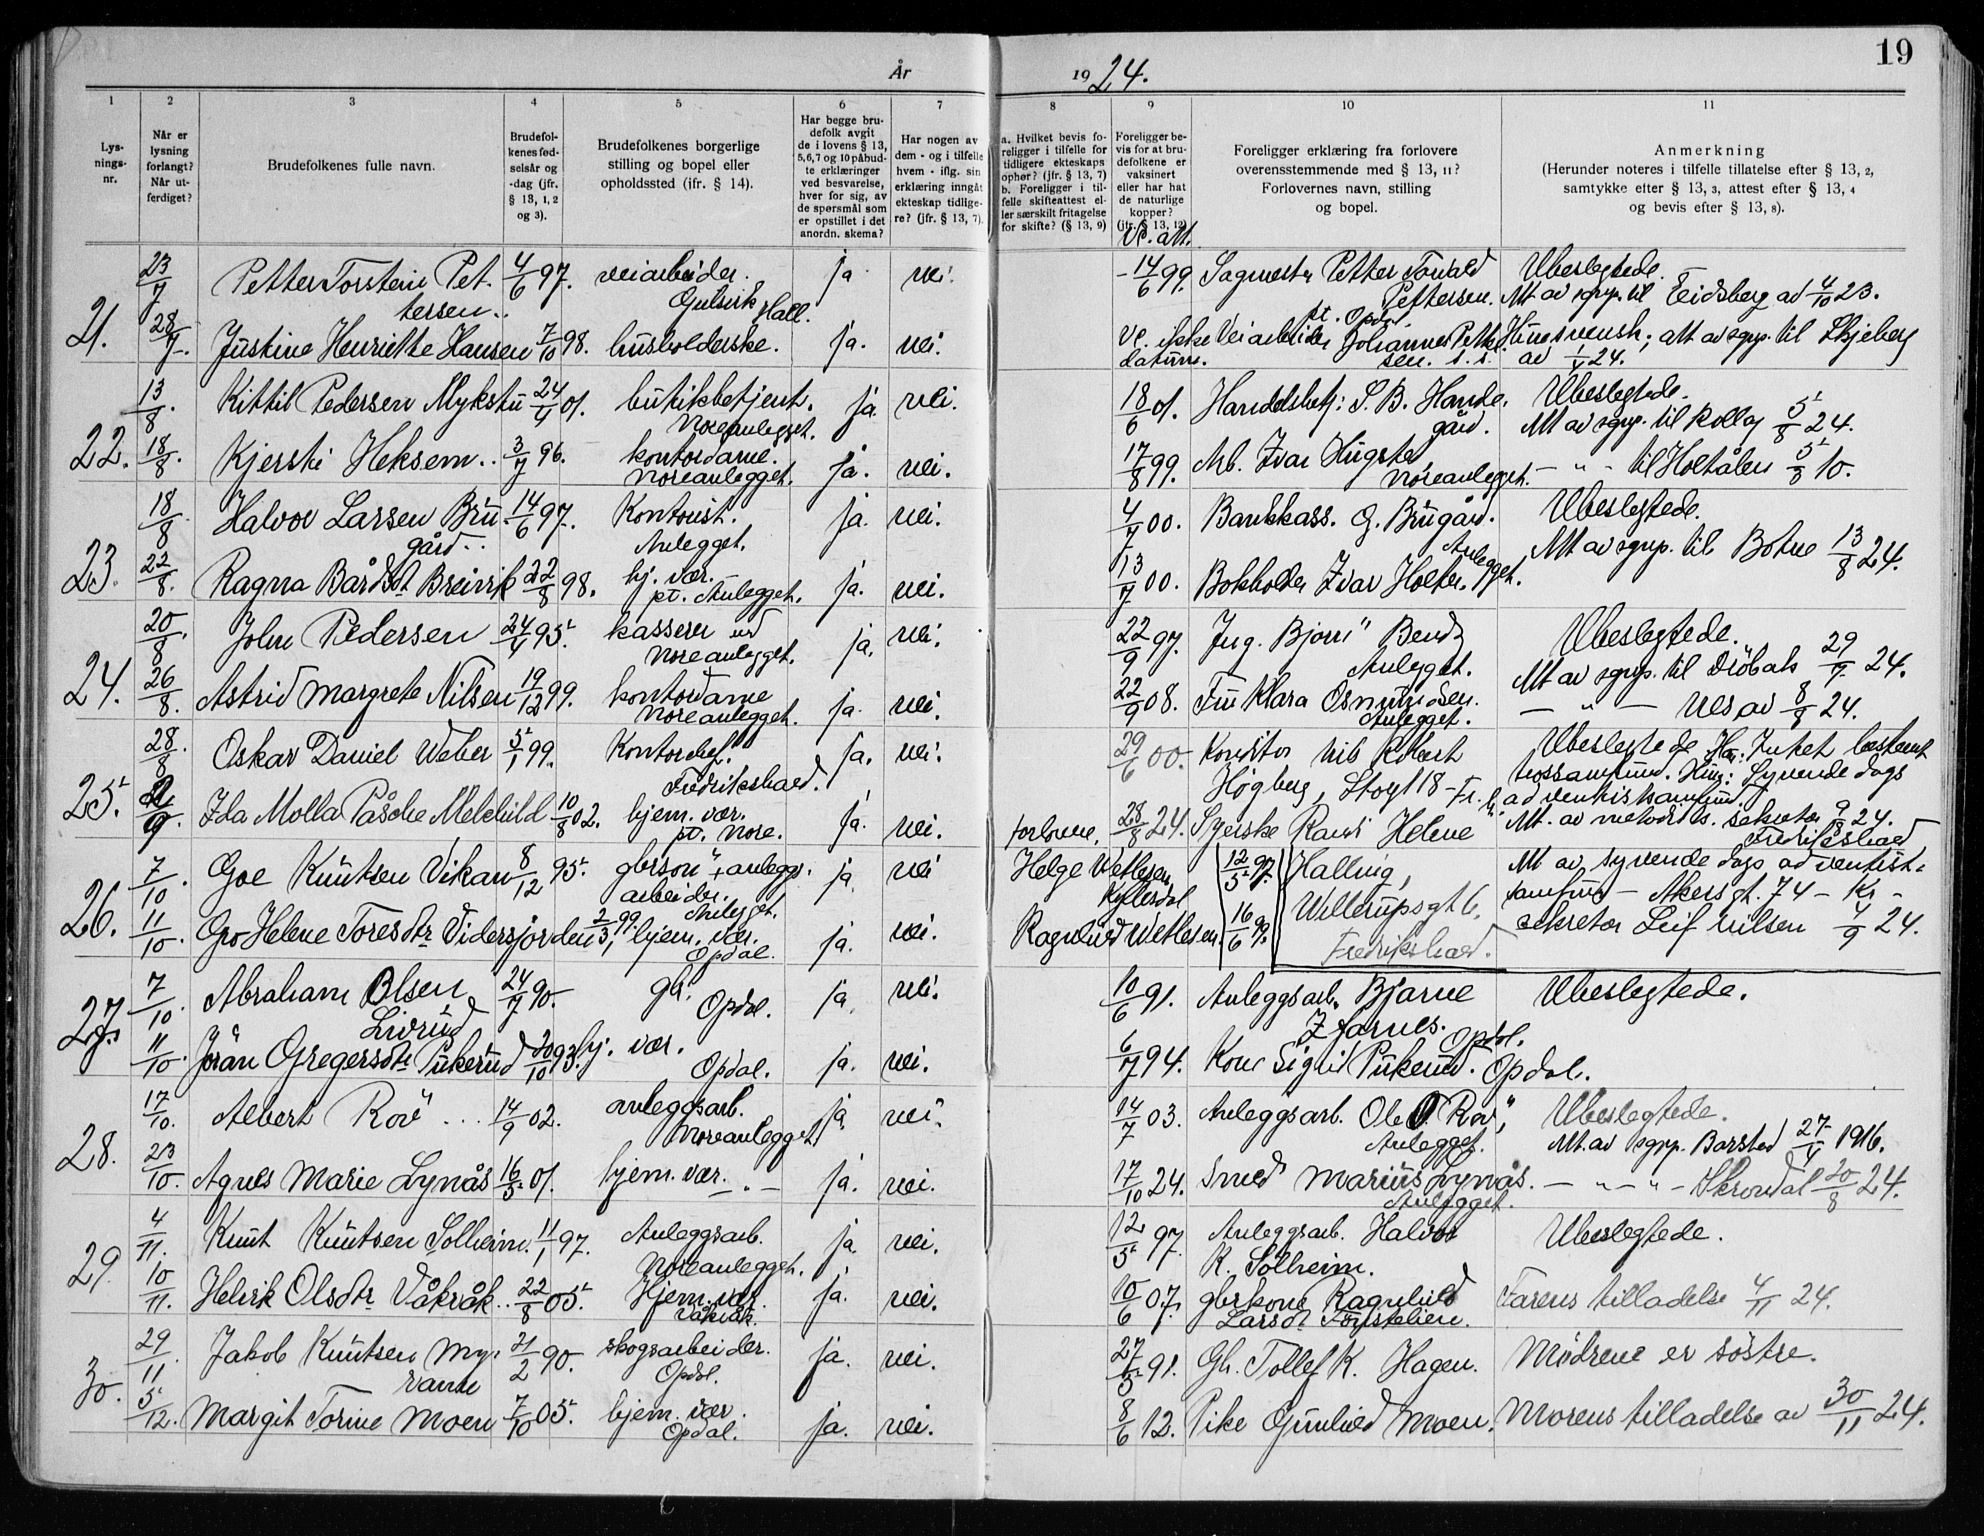 19
År 1924.
1 2 3 4 5 6 7 8 9 10 11
Lys-
nings-
nr.
Når er
lysning
forlangt?
Når ut-
ferdiget?
Brudefolkenes fulle navn.
Brudefol-
kenes fød-
selsår og
-dag (jfr.
§ 13, 1, 2
og 3).
Brudefolkenes borgerlige
stilling og bopel eller
opholdssted (ifr. § 14).
Har begge bru-
defolk avgit
de i lovens § 13,
5, 6, 7 og 10 påbud-
te erklæringer
ved besvarelse,
hver for sig, av
de spørsmål som
er opstillet i det
anordn. skema?
Har nogen av
dem - og i tilfelle
hvem - iflg. sin
erklæring inngåt
ekteskap tidlige-
re? (jfr. § 13, 7).
a. Hvilket bevis fo-
religger i tilfelle for
tidligere ekteskaps
ophør? (jfr. § 13, 7)
b. Foreligger i til-
felle skifteattest el-
ler særskilt fritagelse
for skifte? (§ 13, 9)
Foreligger be-
vis for at bru-
defolkene er
vaksinert
eller har hat
de naturlige
kopper?
(jfr. § 13, 12)
Foreligger erklæring fra forlovere
overensstemmende med § 13, 11?
Forlovernes navn, stilling
og bopel.
Anmerkning
(Herunder noteres i tilfelle tillatelse efter § 13, 2,
samtykke efter § 13, 3, attest efter § 13, 4
og bevis efter § 13, 8).
Vc. att.
23/7 Petter Torstein Pet- 4/6 97. veiarbeider. ja. nei. 14/6 99. Sagmestr Petter Torvald Ubeslegtede.
tersen.. Gulsvik Hall. Pettersen. Att av sgnp. til Eidsberg av 4/10 23.
pt. Opdal
21. 28/7. Justine Henriette Hansen 7/10 98. husholderske. ja. nei. Vc. ikke Veiarbeider Johannes Petter- Hun svensk; att av sgnp. til Skjeberg
datum. sen. s. s. av 24.
13/8. Kittil Pedersen Mykstu 24/4 01. butikbetjent. ja. nei. 18/6 01. Handelsbetj: S. B. Hande- Ubeslegtede.
Noreanlegget. gård. Att av sgnp. til Rollag 5/8 24.
22. 18/8. Kjersti Heksem.. 3/7 96. kontordame. ja. nei. 17/8 99. Arb. Ivar Hugste
Noreanlegget. Noreanlegget. — " - til Holtålen 5/8 10.
18/8. Halvor Larsen Bru- 14/6 97. Kontorist. ja. nei. 4/7 00. Bankkass. G. Brugård. Ubeslegtede.
gård.. Anlegget. Anlegget. Att av sgnp. til Botne 13/8 24.
23. 22/8. Ragna Bårdsdtr Breivik 22/8 98. hj. vær. ja. nei. 13/7 00. Bokholder Ivar Holter.
pt. Anlegget.
20/8. John Pedersen 24/4 95. kasserer ved ja. nei. 22/9 97. Ing. Bjørn Bendz Ubeslegtede.
Noreanlegget. Anlegget. Att av sgnp. til Drøbak 29/7 24.
24. 26/8. Astrid Margrete Nilsen 19/12 99. kontordame ja. nei. 22/9 08. Fru Klara Osmundsen.
Noreanlegget. Anlegget. — " — Nes av 8/8 24.
28/8 Oskar Daniel Weber 5/1 99. Kontorchef. ja. nei. 29/6 00. Konditor Nils Robert Ubeslegtede. Han: Intet bestemt
Fredrikshald. Høgberg, Storgt 18 - Fr. trossamfund. Hun: Syvende dags
adventistsamfund.
25. 9. Ida Molla Påsche Melchild 10/8 02. hjem. vær. ja. nei. forlovere. 28/8 24. Syerske Randi Helene Att. av metodistk. sekretær 24.
pt. Nore. Fredrikshald
7/10. Goe Knutsen Vikan 8/12 95. gbrsøn, anleggs- ja. nei Helge Wetlesen 12/5 97. Halling, Att av syvende dags adventist-
arbeider. Anlegget. samfund — Akersgt. 74 — Kr. —
26. 11/10. Gro Helene Toresdtr Vidersjorden 2/3 99. hjem. vær. ja. nei. Ragnhild Wetlesen. 16/6 Willerupsgt 6. sekretær Leif Nilsen 4/9 24.
Opdal. Fredrikshald.
27. 7/10 Abraham Olsen 24/7 90. gbr. ja. nei. 10/6 91. Anleggsarb. Bjarne Ubeslegtede.
Livrud Opdal. Opdal.
11/10. Jørån Gregersdtr Pukerud 20/10 93. hj. vær. ja. nei. 6/7 94. Kone Sigrid Pukerud. Opdal.
Opdal.
17/10. Albert Rov ... 14/9 02. anleggsarb. ja. nei. 14/7 03. Anleggsarb. Ole O. Rov, Ubeslegtede.
Noreanlegget. Anlegget. Att. av sgnp. 27/4 1916.
28. 23/10. Agnes Marie Lynås 16/5 01. hjem. vær. — " — ja. nei. 17/10 24. Smed Marius Lynås. — " — " — 20/8 24.
Anlegget.
4/11. Knut Knutsen Solheim. 11/1 97. Anleggsarb. ja. nei. 12/5 97. Anleggsarb. Halvor Ubeslegtede.
Noreanlegget. K. Solheim.
29. 10/11. Helvik Olsdtr Våkråk.. 22/8 05. Hjem. vær. ja. nei. 10/6 07. gbrkone Ragnhild Farens tilladelse 4/11 24.
Våkråk. Larsd.
29/11. Jakob Knutsen My- 21/2 90. skogsarbeider. ja. nei. 27/5 91. Gb. Tollef K. Hagen. Mødrene er søstre.
rante Opdal.
30. 5/12. Margit Torine Moen 7/10 05. hjem. vær. ja. nei. 8/6 12. Pike Gunhild Moen. Morens tilladelse av 30/11 24.
Opdal.